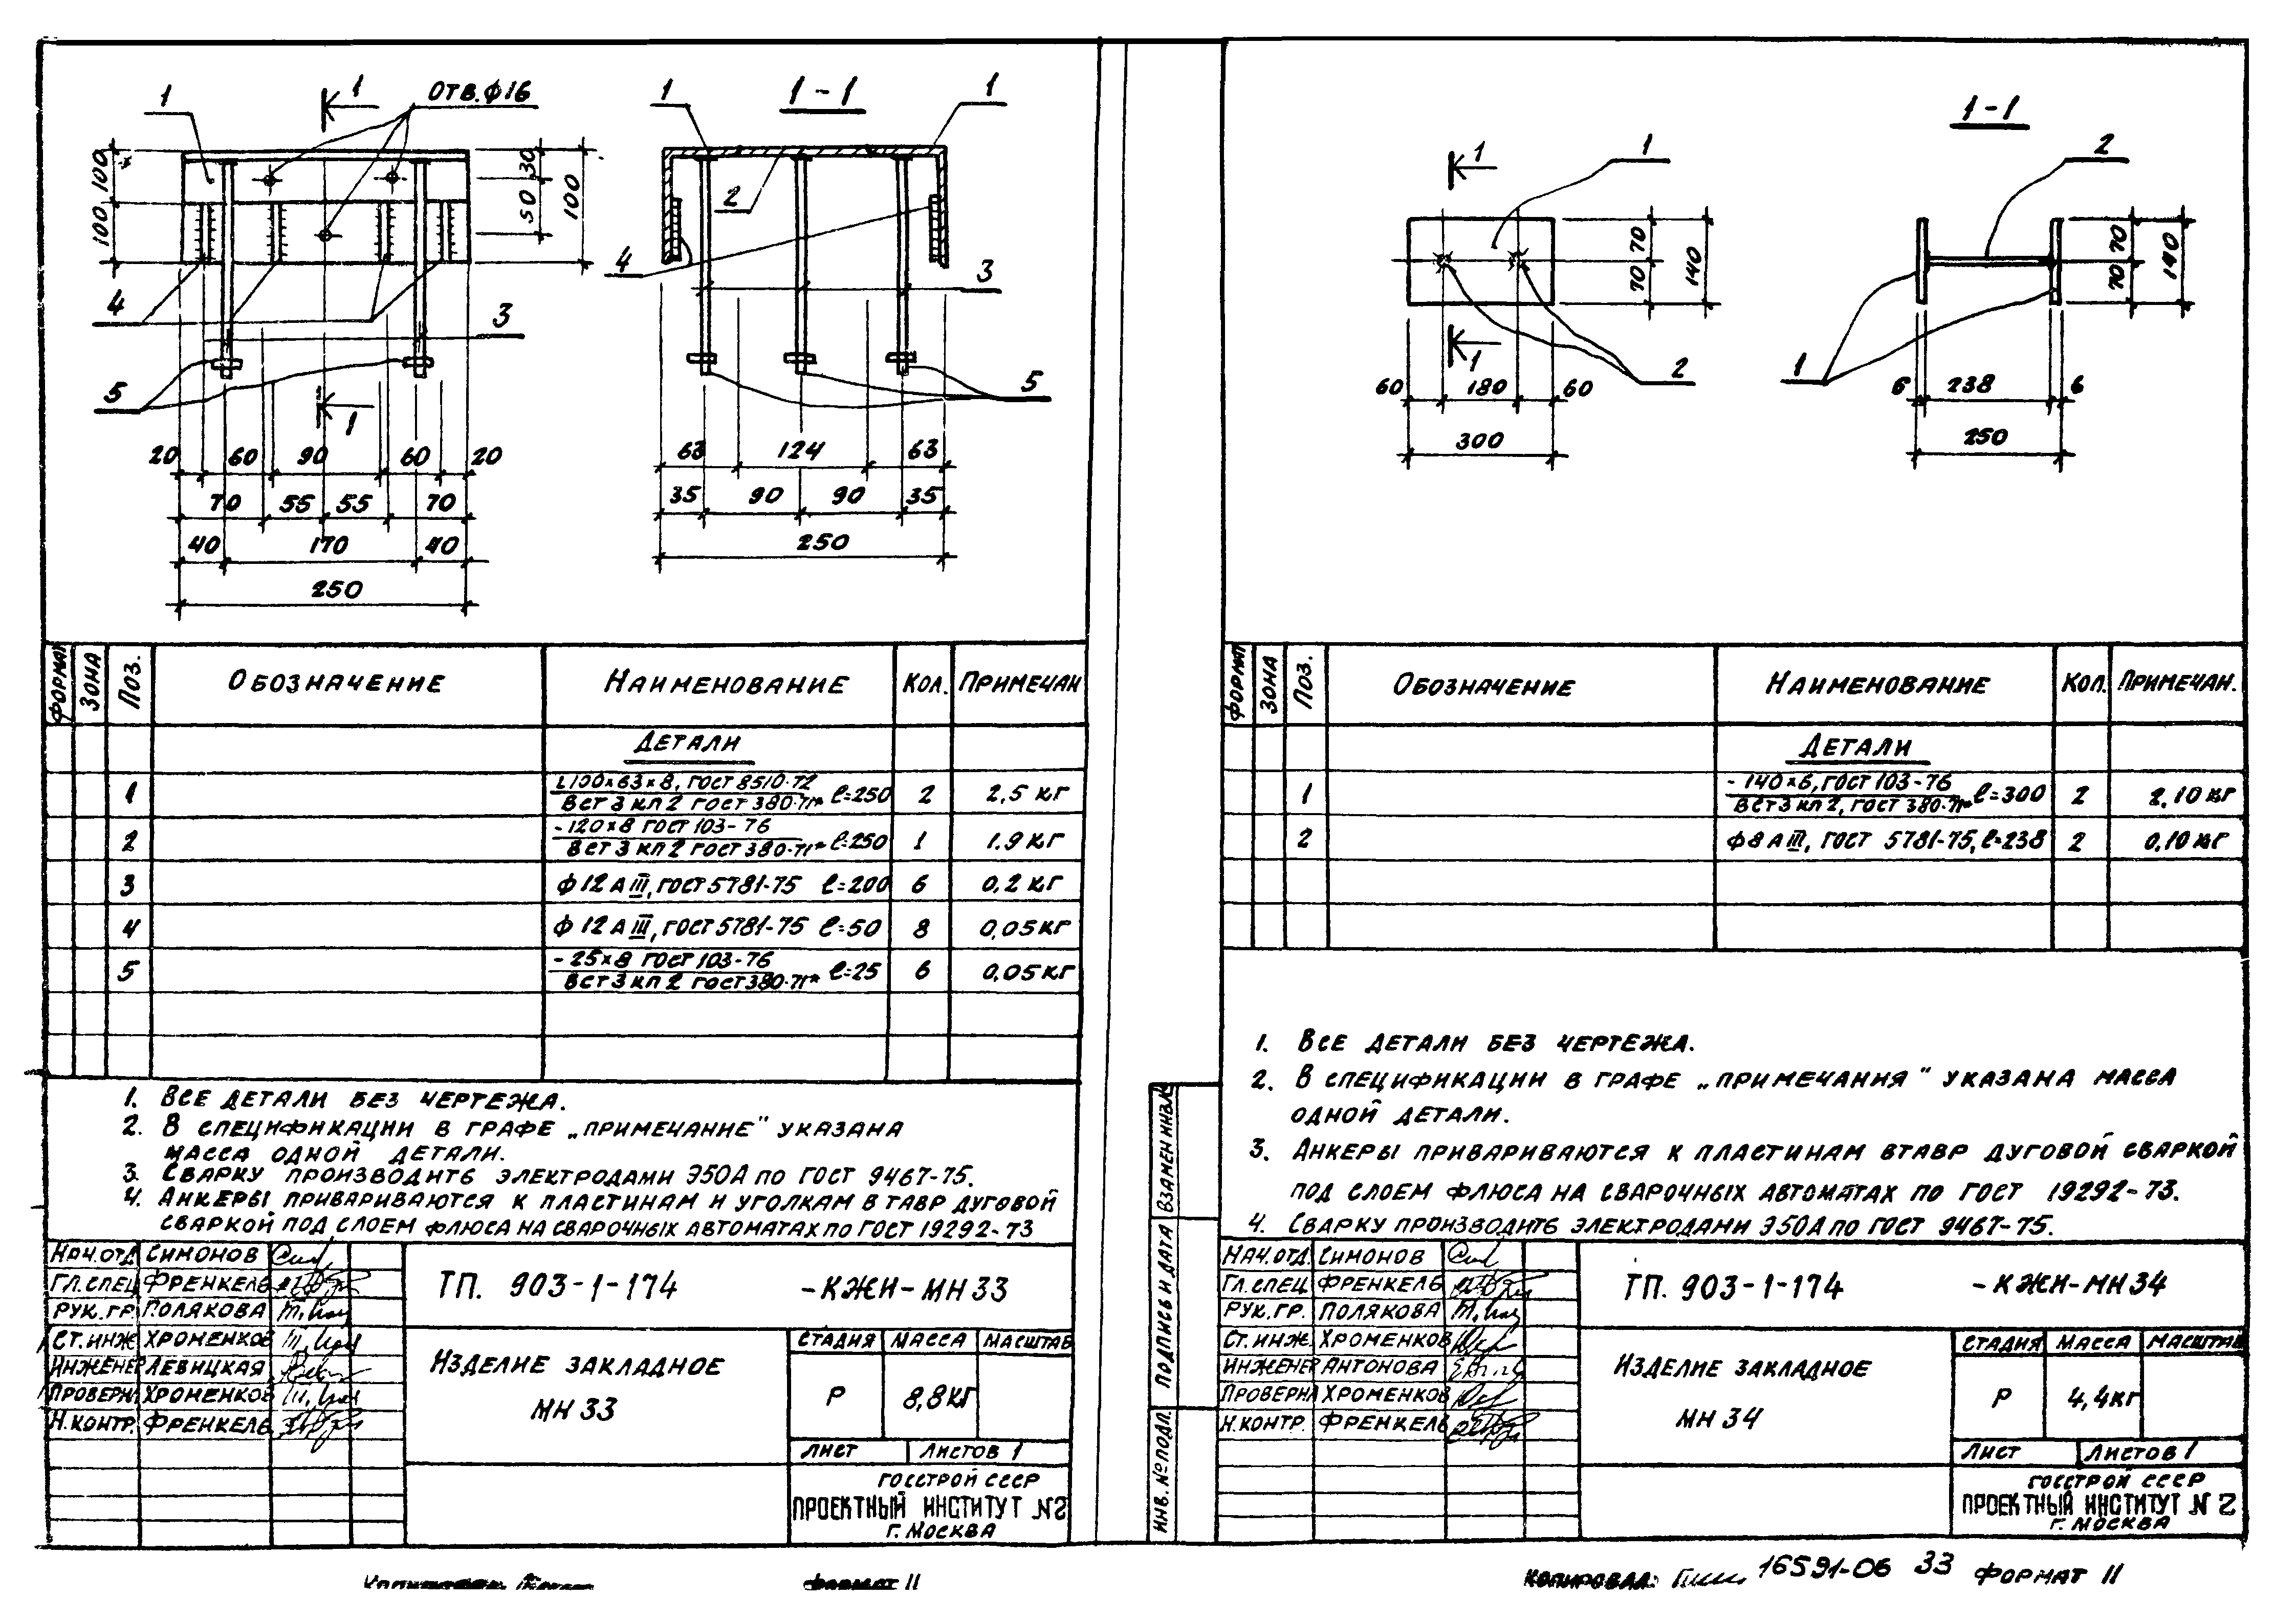 1
1
ОТВ. ф16
1
1-1
1
100
100
30
50
100
2
4
3
4
3
5
5
1
20 60 90 60 20
70 55 55 70
40 170 40
250
63 124 63
35 90 90 35
250
ФОРМАТ ЗОНА ПОЗ. ОБОЗНАЧЕНИЕ НАИМЕНОВАНИЕ КОЛ. ПРИМЕЧАН
ДЕТАЛИ
1 L100×63×8, ГОСТ 8510-72 ВСт3кп2 ГОСТ 380-71* ℓ=250 2 2,5 кг
2 -120×8 ГОСТ 103-76 ВСт3кп2 ГОСТ 380-71* ℓ=250 1 1.9 кг
3 ф12АIII, ГОСТ 5781-75 ℓ=200 6 0,2 кг
4 ф12АIII, ГОСТ 5781-75 ℓ=50 8 0,05 кг
5 -25×8 ГОСТ 103-76 ВСт3кп2 ГОСТ 380-71* ℓ=25 6 0,05 кг
1. ВСЕ ДЕТАЛИ БЕЗ ЧЕРТЕЖА.
2. В СПЕЦИФИКАЦИИ В ГРАФЕ „ПРИМЕЧАНИЕ" УКАЗАНА
МАССА ОДНОЙ ДЕТАЛИ.
3. СВАРКУ ПРОИЗВОДИТЬ ЭЛЕКТРОДАМИ Э50А ПО ГОСТ 9467-75.
4. АНКЕРЫ ПРИВАРИВАЮТСЯ К ПЛАСТИНАМ И УГОЛКАМ В ТАВР ДУГОВОЙ
СВАРКОЙ ПОД СЛОЕМ ФЛЮСА НА СВАРОЧНЫХ АВТОМАТАХ ПО ГОСТ 19292-73
НАЧ.ОТД. СИМОНОВ
ГЛ.СПЕЦ ФРЕНКЕЛЬ
РУК.ГР. ПОЛЯКОВА
СТ.ИНЖ ХРОМЕНКОВ
ИНЖЕНЕР ЛЕВИЦКАЯ
ПРОВЕРИЛ ХРОМЕНКОВ
Н.КОНТР. ФРЕНКЕЛЬ
ТП. 903-1-174 -КЖИ-МН33
ИЗДЕЛИЕ ЗАКЛАДНОЕ
МН 33
СТАДИЯ МАССА МАСШТАБ
Р 8,8кг
ЛИСТ ЛИСТОВ 1
ГОССТРОЙ СССР
ПРОЕКТНЫЙ ИНСТИТУТ №2
Г. МОСКВА
ФОРМАТ 11
1-1
1
1
2
70
70
140
70
70
140
1
2
1
60 180 60
300
6 238 6
250
ФОРМАТ ЗОНА ПОЗ. ОБОЗНАЧЕНИЕ НАИМЕНОВАНИЕ КОЛ. ПРИМЕЧАН.
ДЕТАЛИ
1 -140×6, ГОСТ 103-76 ВСт3кп2, ГОСТ 380-71* ℓ=300 2 2,10 кг
2 ф8АIII, ГОСТ 5781-75, ℓ=238 2 0,10 кг
1. ВСЕ ДЕТАЛИ БЕЗ ЧЕРТЕЖА.
2. В СПЕЦИФИКАЦИИ В ГРАФЕ „ПРИМЕЧАНИЯ" УКАЗАНА МАССА
ОДНОЙ ДЕТАЛИ.
3. АНКЕРЫ ПРИВАРИВАЮТСЯ К ПЛАСТИНАМ ВТАВР ДУГОВОЙ СВАРКОЙ
ПОД СЛОЕМ ФЛЮСА НА СВАРОЧНЫХ АВТОМАТАХ ПО ГОСТ 19292-73.
4. СВАРКУ ПРОИЗВОДИТЬ ЭЛЕКТРОДАМИ Э50А ПО ГОСТ 9467-75.
ВЗАМЕН ИНВ.№
ПОДПИСЬ И ДАТА
ИНВ. № ПОДЛ.
НАЧ.ОТД. СИМОНОВ
ГЛ.СПЕЦ ФРЕНКЕЛЬ
РУК.ГР. ПОЛЯКОВА
СТ.ИНЖ. ХРОМЕНКОВ
ИНЖЕНЕР АНТОНОВА
ПРОВЕРИЛ ХРОМЕНКОВ
Н.КОНТР. ФРЕНКЕЛЬ
ТП. 903-1-174 -КЖИ-МН34
ИЗДЕЛИЕ ЗАКЛАДНОЕ
МН 34
СТАДИЯ МАССА МАСШТАБ
Р 4,4кг
ЛИСТ ЛИСТОВ 1
ГОССТРОЙ СССР
ПРОЕКТНЫЙ ИНСТИТУТ №2
Г. МОСКВА
КОПИРОВАЛ: 16591-06 33 ФОРМАТ 11